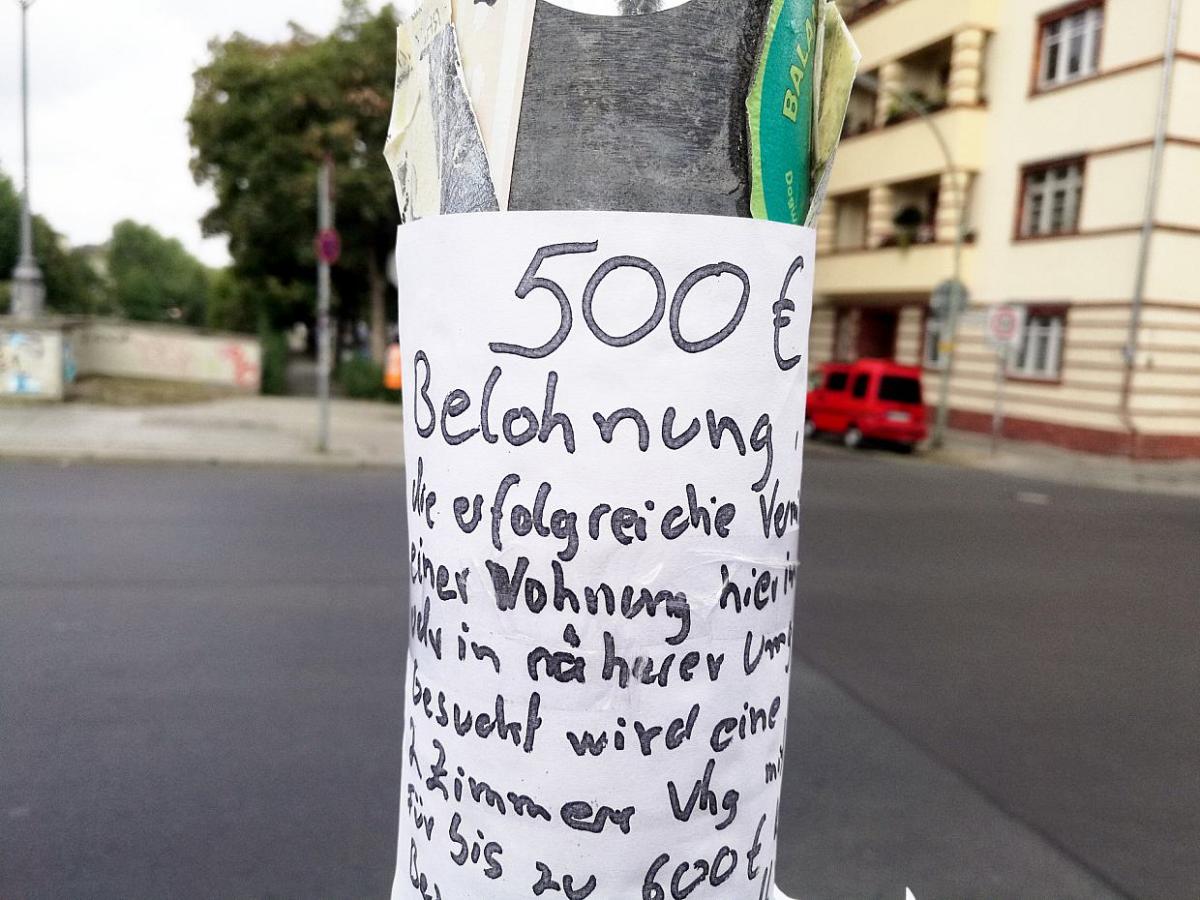 BALA
500 €
Belohnung
die erfolgreiche Verm
einer Wohnung hier in
oder in näherer Umg
Gesucht wird eine
2 Zimmer Whg mi
Für bis zu 600 €
Be